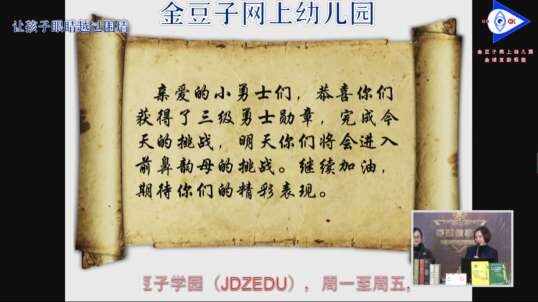 金豆子网上幼儿园
让孩子眼睛
亲爱的小勇士们，恭喜你们
获得了三级勇士勋章，完成今
天的挑战，明天你们将会进入
前鼻韵母的挑战。继续加油，
期待你们的精彩表现。
金豆子网上幼儿园
豆子学园（JDZEDU），周一至周五，